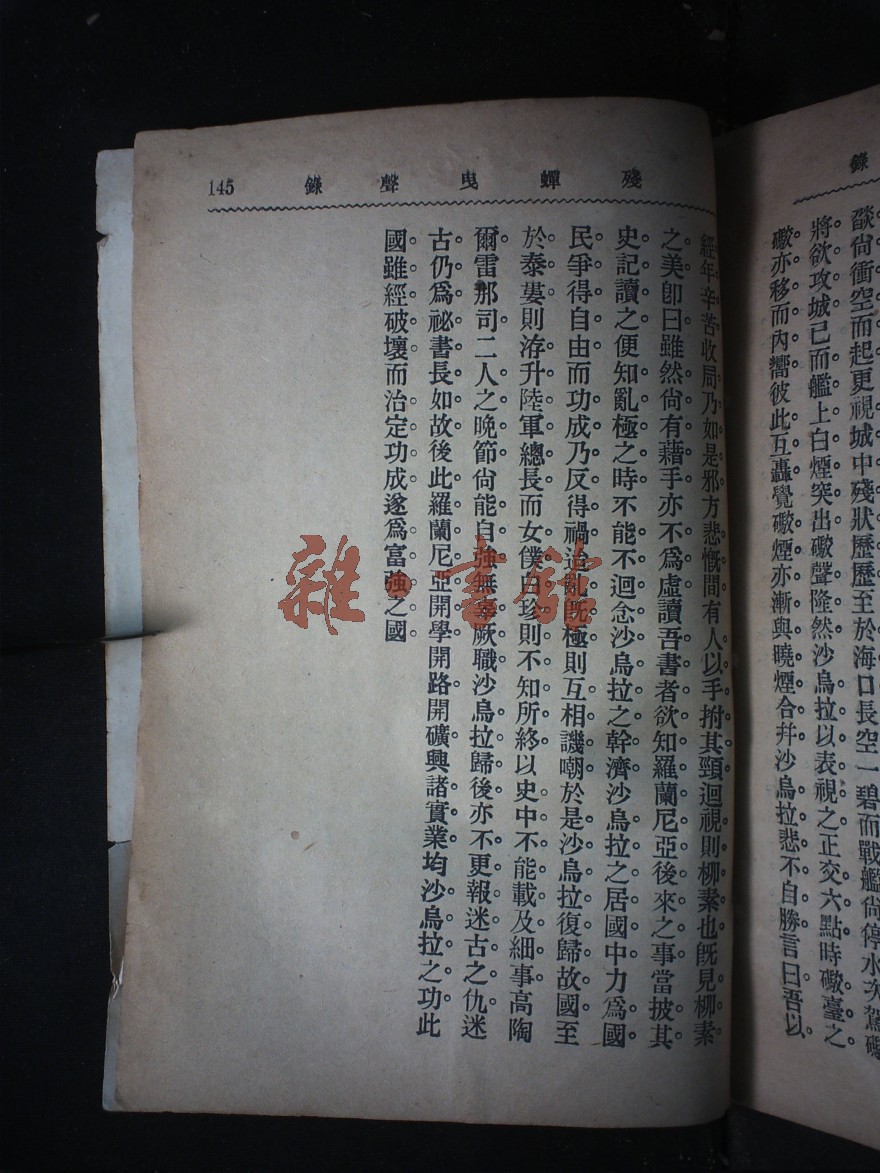 錄
燄尙衝空而起更視城中殘狀歷歷至於海口長空一碧而戰艦尙停水次駕礮
將欲攻城已而艦上白煙突出礮聲隆然沙烏拉以表視之正交六點時礮臺之
礮亦移而內嚮彼此互轟覺礮煙亦漸與曉煙合幷沙烏拉悲不自勝言曰吾以
殘蟬曳聲錄 145
經年辛苦收局乃如是邪方悲慨間有人以手拊其頸迴視則柳素也旣見柳素
之美卽曰雖然尙有藉手亦不爲虛讀吾書者欲知羅蘭尼亞後來之事當披其
史記讀之便知亂極之時不能不迴念沙烏拉之幹濟沙烏拉之居國中力爲國
民爭得自由而功成乃反得禍迨亂旣極則互相譏嘲於是沙烏拉復歸故國至
於泰婁則洊升陸軍總長而女僕白珍則不知所終以史中不能載及細事高陶
爾雷那司二人之晚節尙能自強無辜厥職沙烏拉歸後亦不更報迷古之仇迷
古仍爲祕書長如故後此羅蘭尼亞開學開路開礦興諸實業均沙烏拉之功此
國雖經破壞而治定功成遂爲富強之國
雜·書館